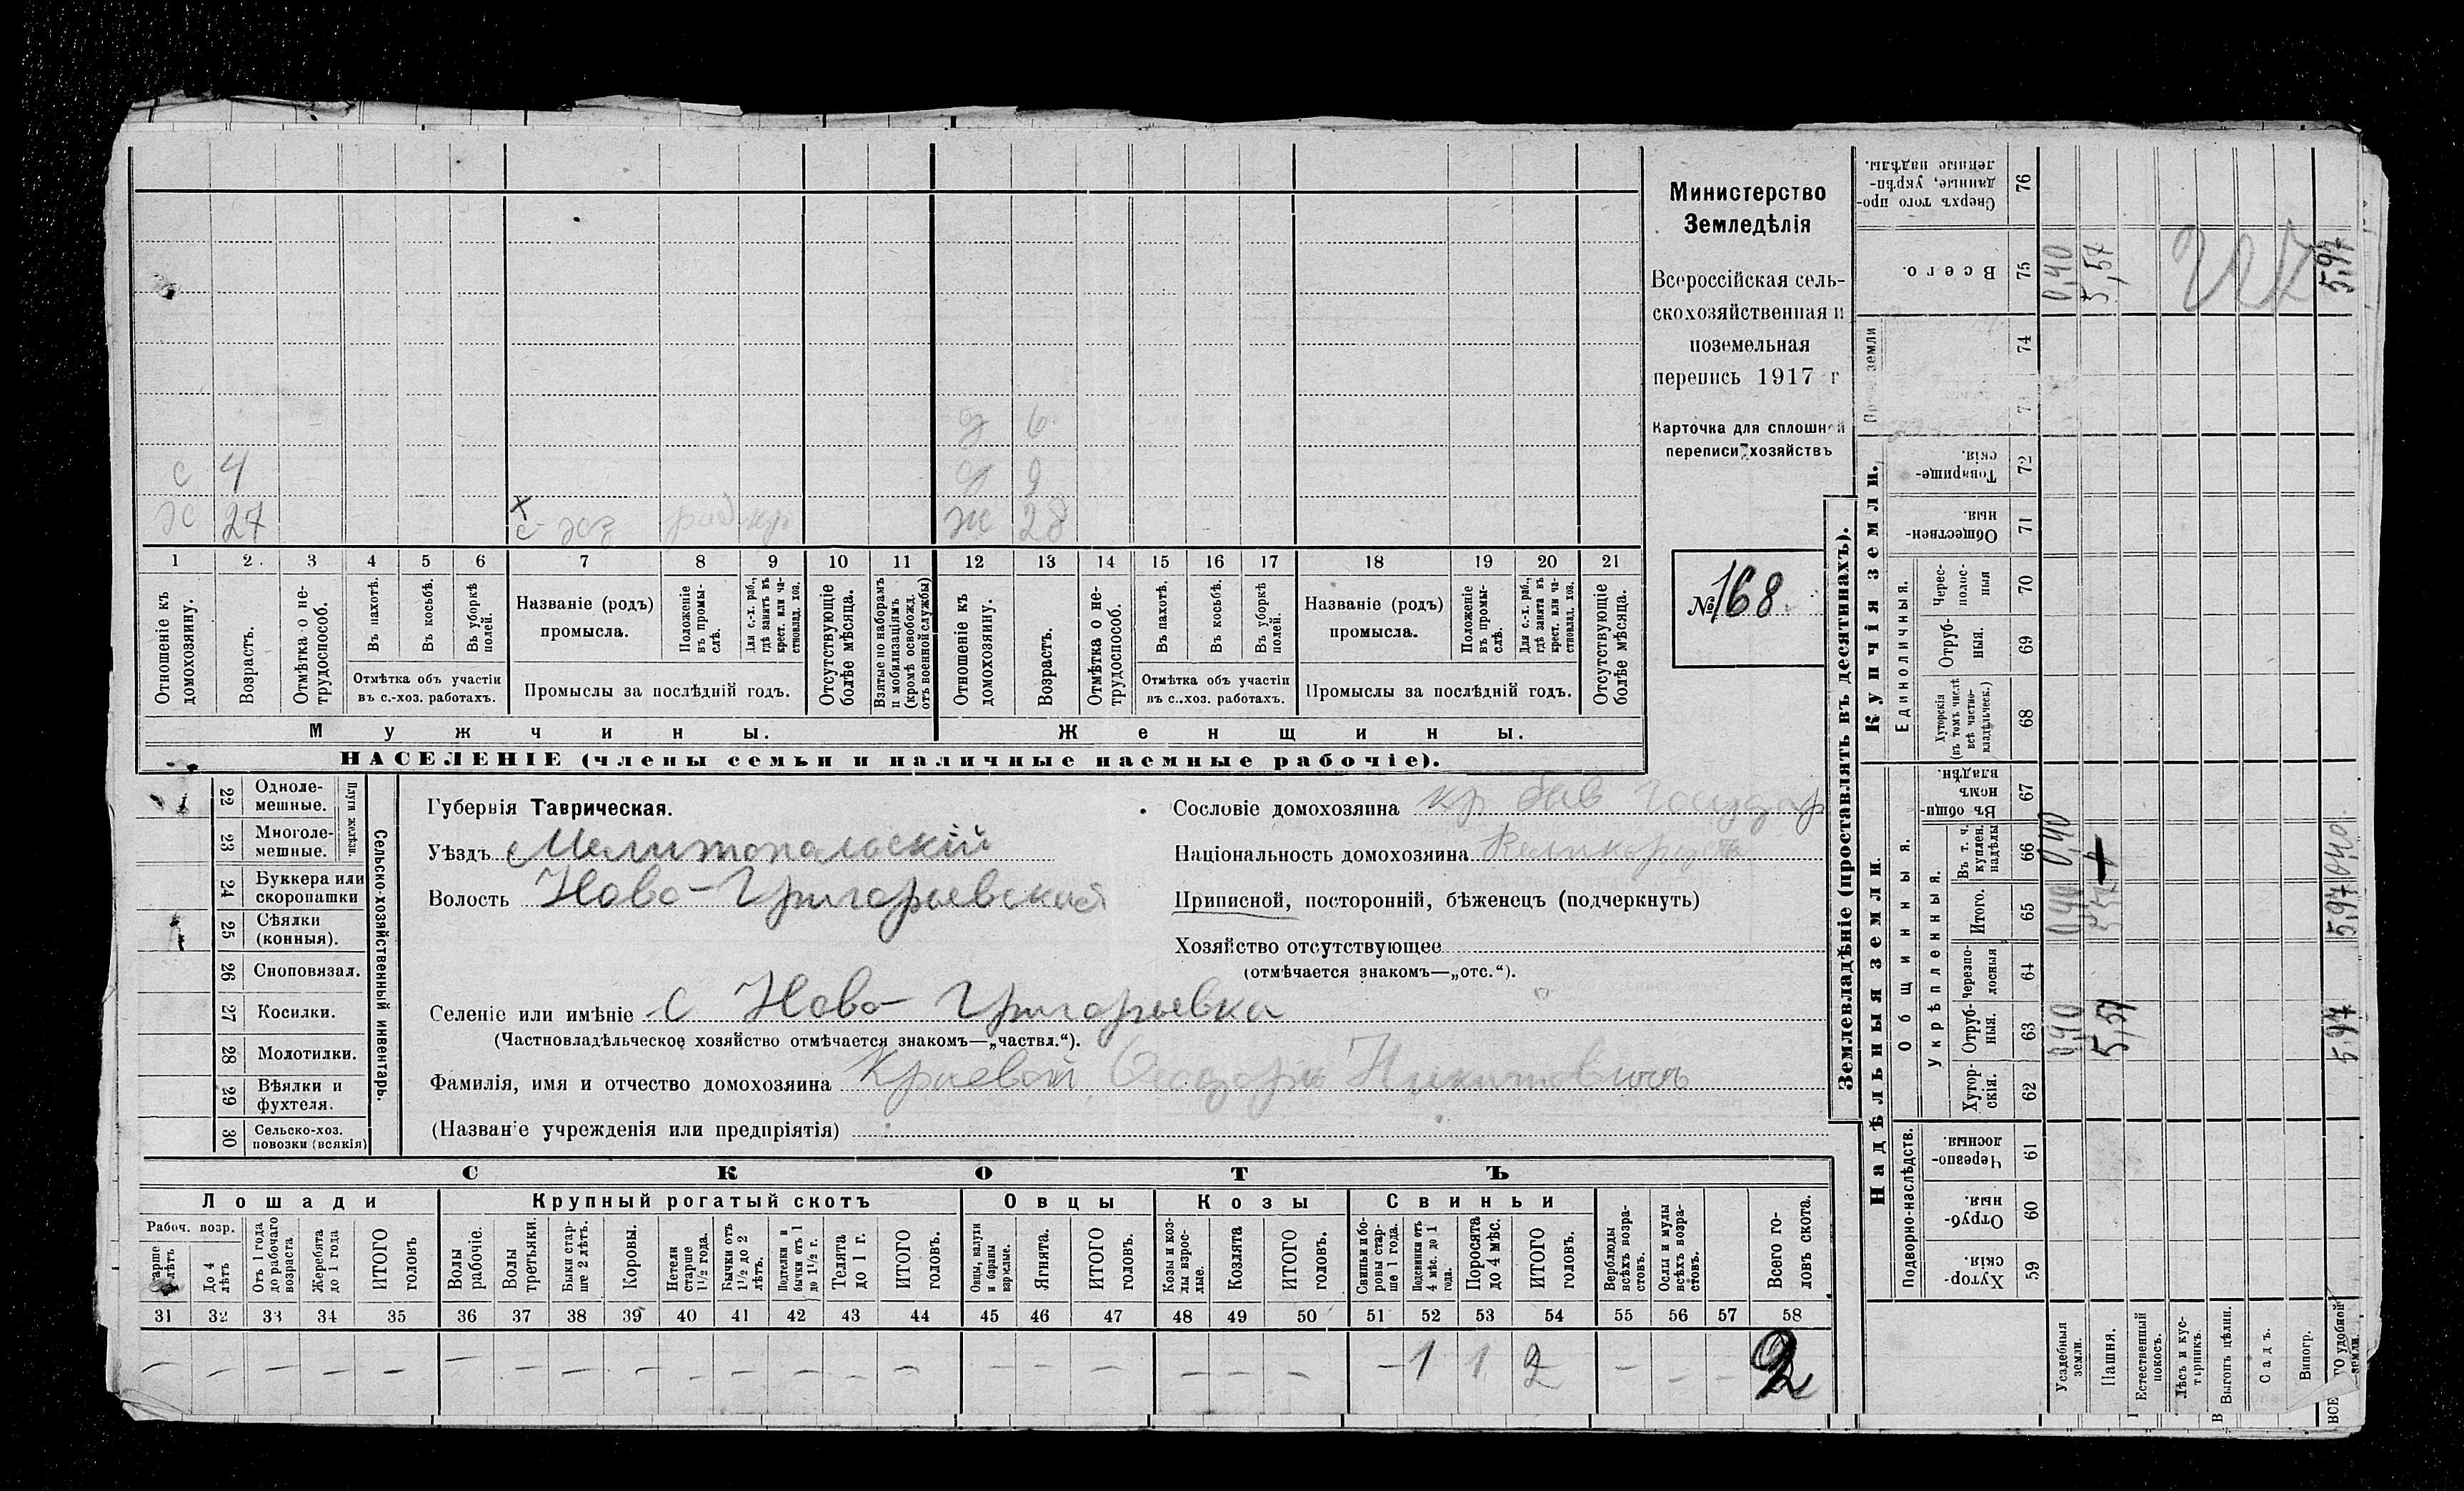 Министерство
Земледѣлія
Всероссійская сель-
скохозяйственная и
поземельная
перепись 1917 г
Карточка для сплошной
переписи хозяйствъ
№ 168
д 6
с 4 д 9
ж 27
х
с-хз раб кр ж 28
1 2 3 4 5 6 7 8 9 10 11 12 13 14 15 16 17 18 19 20 21
Отношеніе къ домохозяину.
Возрастъ.
Отмѣтка о не-трудоспособ.
Въ пахотѣ.
Въ косьбѣ.
Въ уборкѣ полей.
Отмѣтка объ участіи
въ с.-хоз. работахъ.
Названіе (родъ)
промысла.
Положеніе въ промы-слѣ.
Для с.-х. раб., гдѣ занятъ въ крест. или ча-стновлад. хоз.
Промыслы за послѣдній годъ.
Отсутствующіе болѣе мѣсяца.
Взятые по наборамъ и мобилизаціямъ (кромѣ освобожд. отъ военной службы)
Отношеніе къ домохозяину.
Возрастъ.
Отмѣтка о не-трудоспособ.
Въ пахотѣ.
Въ косьбѣ.
Въ уборкѣ полей.
Отмѣтка объ участіи
въ с.-хоз. работахъ.
Названіе (родъ)
промысла.
Положеніе въ промы-слѣ.
Для с.-х. раб., гдѣ занята въ крест. или ча-стновлад. хоз.
Промыслы за послѣдній годъ.
Отсутствующіе болѣе мѣсяца.
Мужчины. Женщины.
НАСЕЛЕНІЕ (члены семьи и наличные наемные рабочіе).
Сельско-хозяйственный инвентарь.
Плуги желѣзн
22 Одноле-мешные.
23 Многоле-мешные.
24 Буккера или скоропашки
25 Сѣялки (конныя).
26 Сноповязал.
27 Косилки.
28 Молотилки.
29 Вѣялки и фухтеля.
30 Сельско-хоз. повозки (всякія)
Губернія Таврическая.
Уѣздъ Мелитопольскій
Волость Ново-Григорьевская
Сословіе домохозяина кр бив Государ
Національность домохозяина Великороссъ
Приписной, посторонній, бѣженецъ (подчеркнуть)
Хозяйство отсутствующее
(отмѣчается знакомъ—„отс.“).
Селеніе или имѣніе с Ново-Григорьевка
(Частновладѣльческое хозяйство отмѣчается знакомъ—„частвл.“).
Фамилія, имя и отчество домохозяина Краевой Ѳеодоръ Никитовичъ
(Названіе учрежденія или предпріятія)
СКОТЪ
Лошади Крупный рогатый скотъ Овцы Козы Свиньи
Рабоч. возр.
Старше лѣтъ
До 4 лѣтъ
Отъ 1 года до рабочаго возраста
Жеребята до 1 года
ИТОГО головъ
Волы рабочіе.
Волы третьяки.
Быки стар-ше 2 лѣтъ.
Коровы.
Нетели старше 1½ года.
Бычки отъ 1½ до 2 лѣтъ.
Подтелки и бычки отъ 1 до 1½ г.
Телята до 1 г.
ИТОГО головъ.
Овцы, валухи и бараны взрослые.
Ягнята.
ИТОГО головъ.
Козы и коз-лы взрос-лые.
Козлята
ИТОГО головъ.
Свиньи и бо-ровы стар-ше 1 года.
Подсвинки отъ 4 мѣс. до 1 года.
Поросята до 4 мѣс.
ИТОГО головъ.
Верблюды всѣхъ возра-стовъ.
Ослы и мулы всѣхъ возра-стовъ.
Всего го-ловъ скота.
31 32 33 34 35 36 37 38 39 40 41 42 43 44 45 46 47 48 49 50 51 52 53 54 55 56 57 58
— — — — — — — — — — — — — — — — — — — — — 1 1 2 — — — 2
Землевладѣніе (проставлять въ десятинахъ).
Купчія земли.
Надѣльныя земли.
Сверхъ того про-данные, укрѣп-ленные надѣлы. 76
Всего. 75 0,40 5,57 5,97
земли 74
Товарище-скія. 72
Обществен-ныя. 71
Единоличныя.
Черес-полос-ныя 70
Отруб-ныя. 69
Хуторскія (въ томъ числѣ всѣ частно-владѣльческ.) 68
Общинныя.
Въ общи-номъ владѣн. 67
Укрѣпленныя.
Въ т. ч. куплен. надѣлы 66 0,40 0,40
Итого. 65 0,40 5,57 5,97
Черезпо-лосныя 64
Отруб-ныя. 63 0,40 5,57 5,97
Хутор-скія. 62
Подворно-наслѣдств.
Черезпо-лосныя 61
Отруб-ныя. 60
Хутор-скія. 59
Усадебныя земли.
Пашня.
Естественный покосъ.
Лѣсъ и кус-тарникъ.
Выгонъ цѣлин.
Садъ.
Виногр.
ВСЕГО удобной земли.